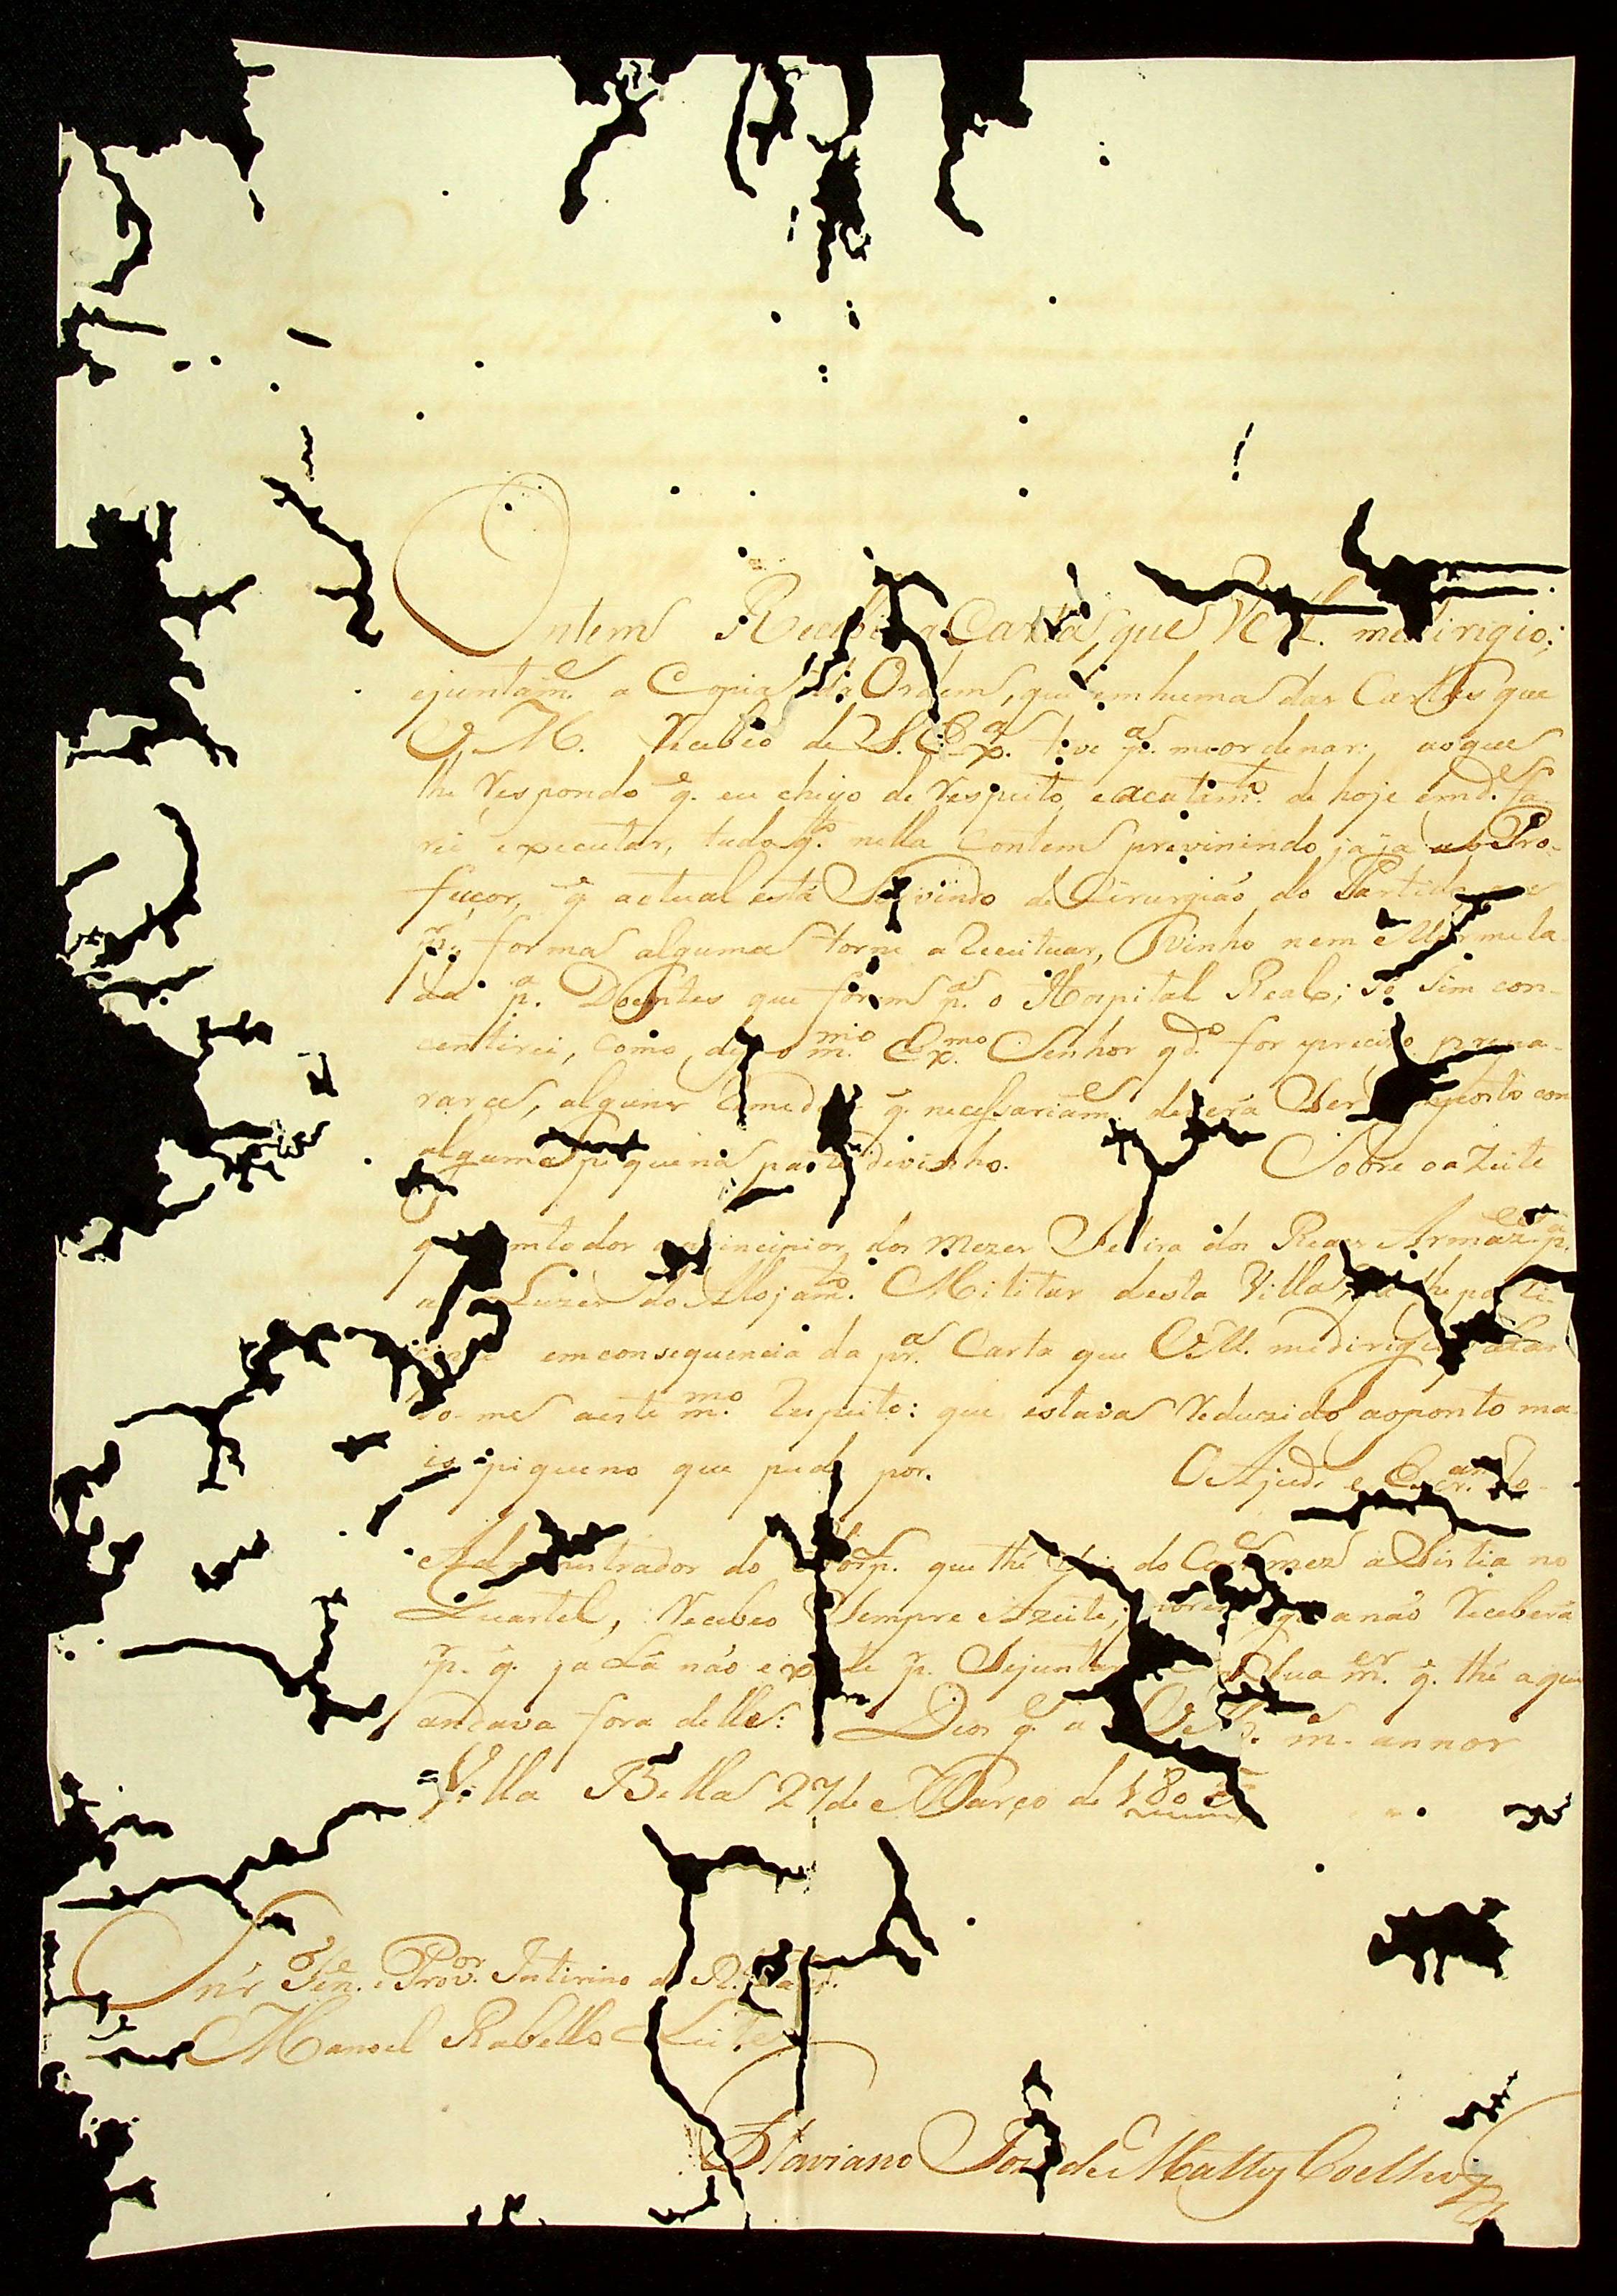 Ontem Recebi a Carta, que VM. me dirigio;
ejuntam.e a Copia da Ordem, que em huma das Cartas que
V.M. recebeo de S. Ex.a teve p.a me ordenar; ao que
lhe respondo q.e eu cheyo de respeito, e acatam.to de hoje em d.e fa-
rei executar, tudo q.to nella contem previnindo já já ao Pro-
feçor, q̃ actual está Servindo de Cirurgião do Partido,
p.r forma alguma torne a Receituar, vinho nem Marmela-
da p.a Doentes que forem p.a o Hospital Real; só sim con-
centirei, como diz o m.mo Ex.mo Senhor q.do for precizo prepa-
rarce, alguns q.e necessariam.e deverá Ser com
alguma piquena parte de vinho. Sobre o aZeite
todos os principios dos Mezes Se tira dos Reaes Armaz.es p.a
as Luzes do Alojam.to Militar desta Villa, lhe parti-
em consequencia da pr.a Carta que VM. me dirigio
do-me a este m.mo respeito: que estava reduzido ao ponto ma-
is piqueno que pude por. O Ajud.e e Escr.am do
Administrador do Hosp.al que thé do Cor.e mez aSistia no
Quartel, recebeo Sempre Azeite; porem agora não receberá
p.r q.e ja Lá não existe p.r Sejuntar Sua m.er q.e thé aqui
andava fora delle: Deos g.e a VM. m.s annos
Villa Bella 27 de Março de 180
Snr. Ten.e e Prov.or Intirino da R. Faz.da
Manoel Rabello Leite
Flaviano Joze de Mattos Coelho